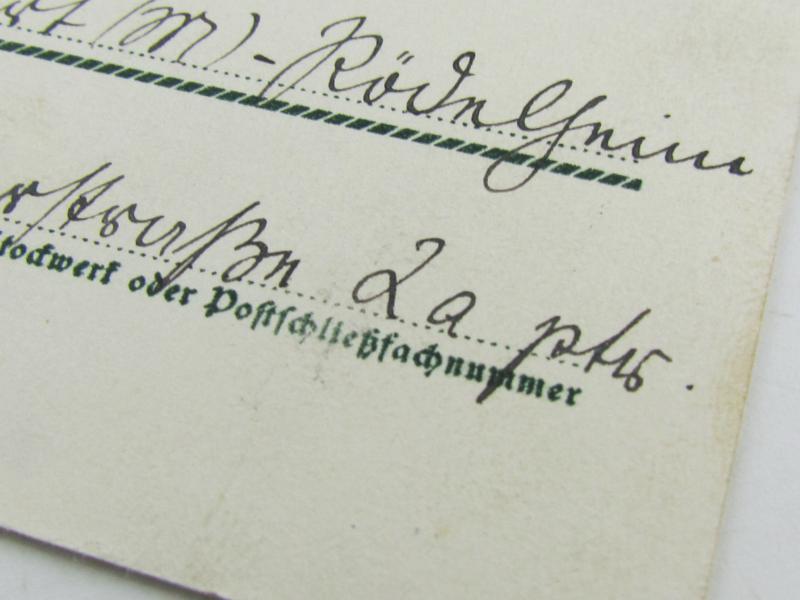 rt (M) - Rödelheim
rstraße 2a ptr.
Stockwerk oder Postschließfachnummer